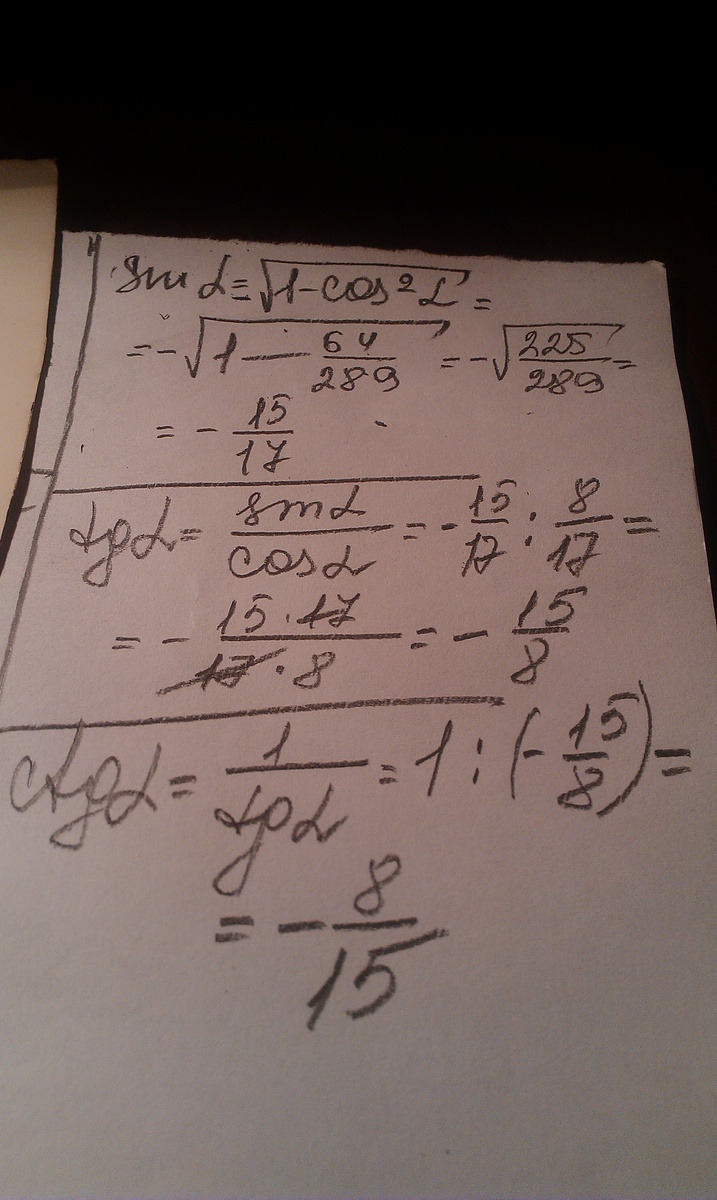 sin α = √(1-cos² α) =
= -√(1 - 64/289) = -√(225/289) =
= - 15/17
tg α = sin α/cos α = - 15/17 : 8/17 =
= - 15·17/17·8 = - 15/8
ctg α = 1/tg α = 1 : (- 15/8) =
= - 8/15